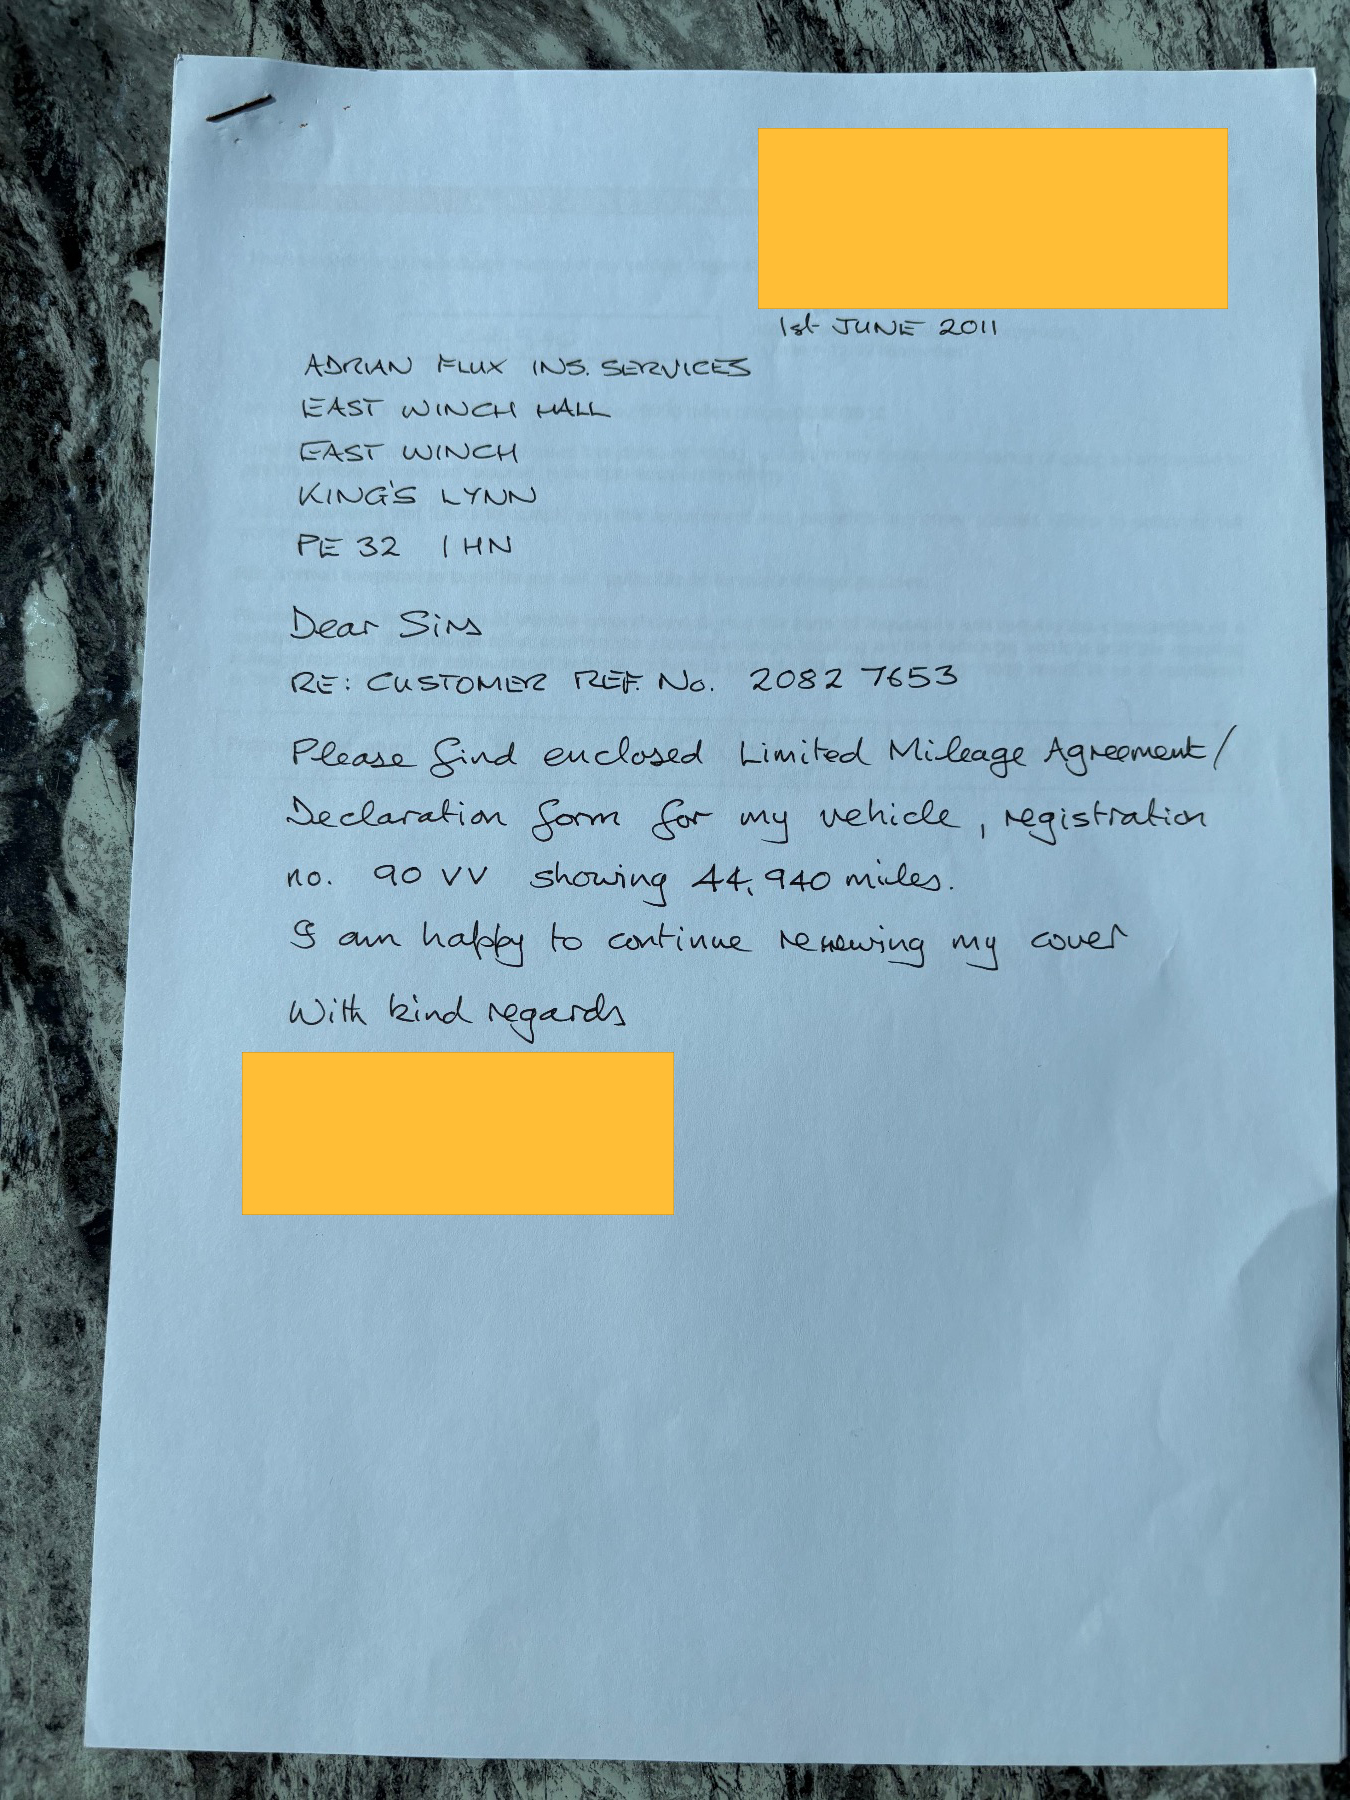 1st JUNE 2011
ADRIAN FLUX INS. SERVICES
EAST WINCH HALL
EAST WINCH
KING'S LYNN
PE 32 1HN
Dear Sirs
RE: CUSTOMER REF. No. 2082 7653
Please find enclosed Limited Mileage Agreement/
Declaration form for my vehicle, registration
no. 90 VV showing 44,940 miles.
I am happy to continue renewing my cover
With kind regards